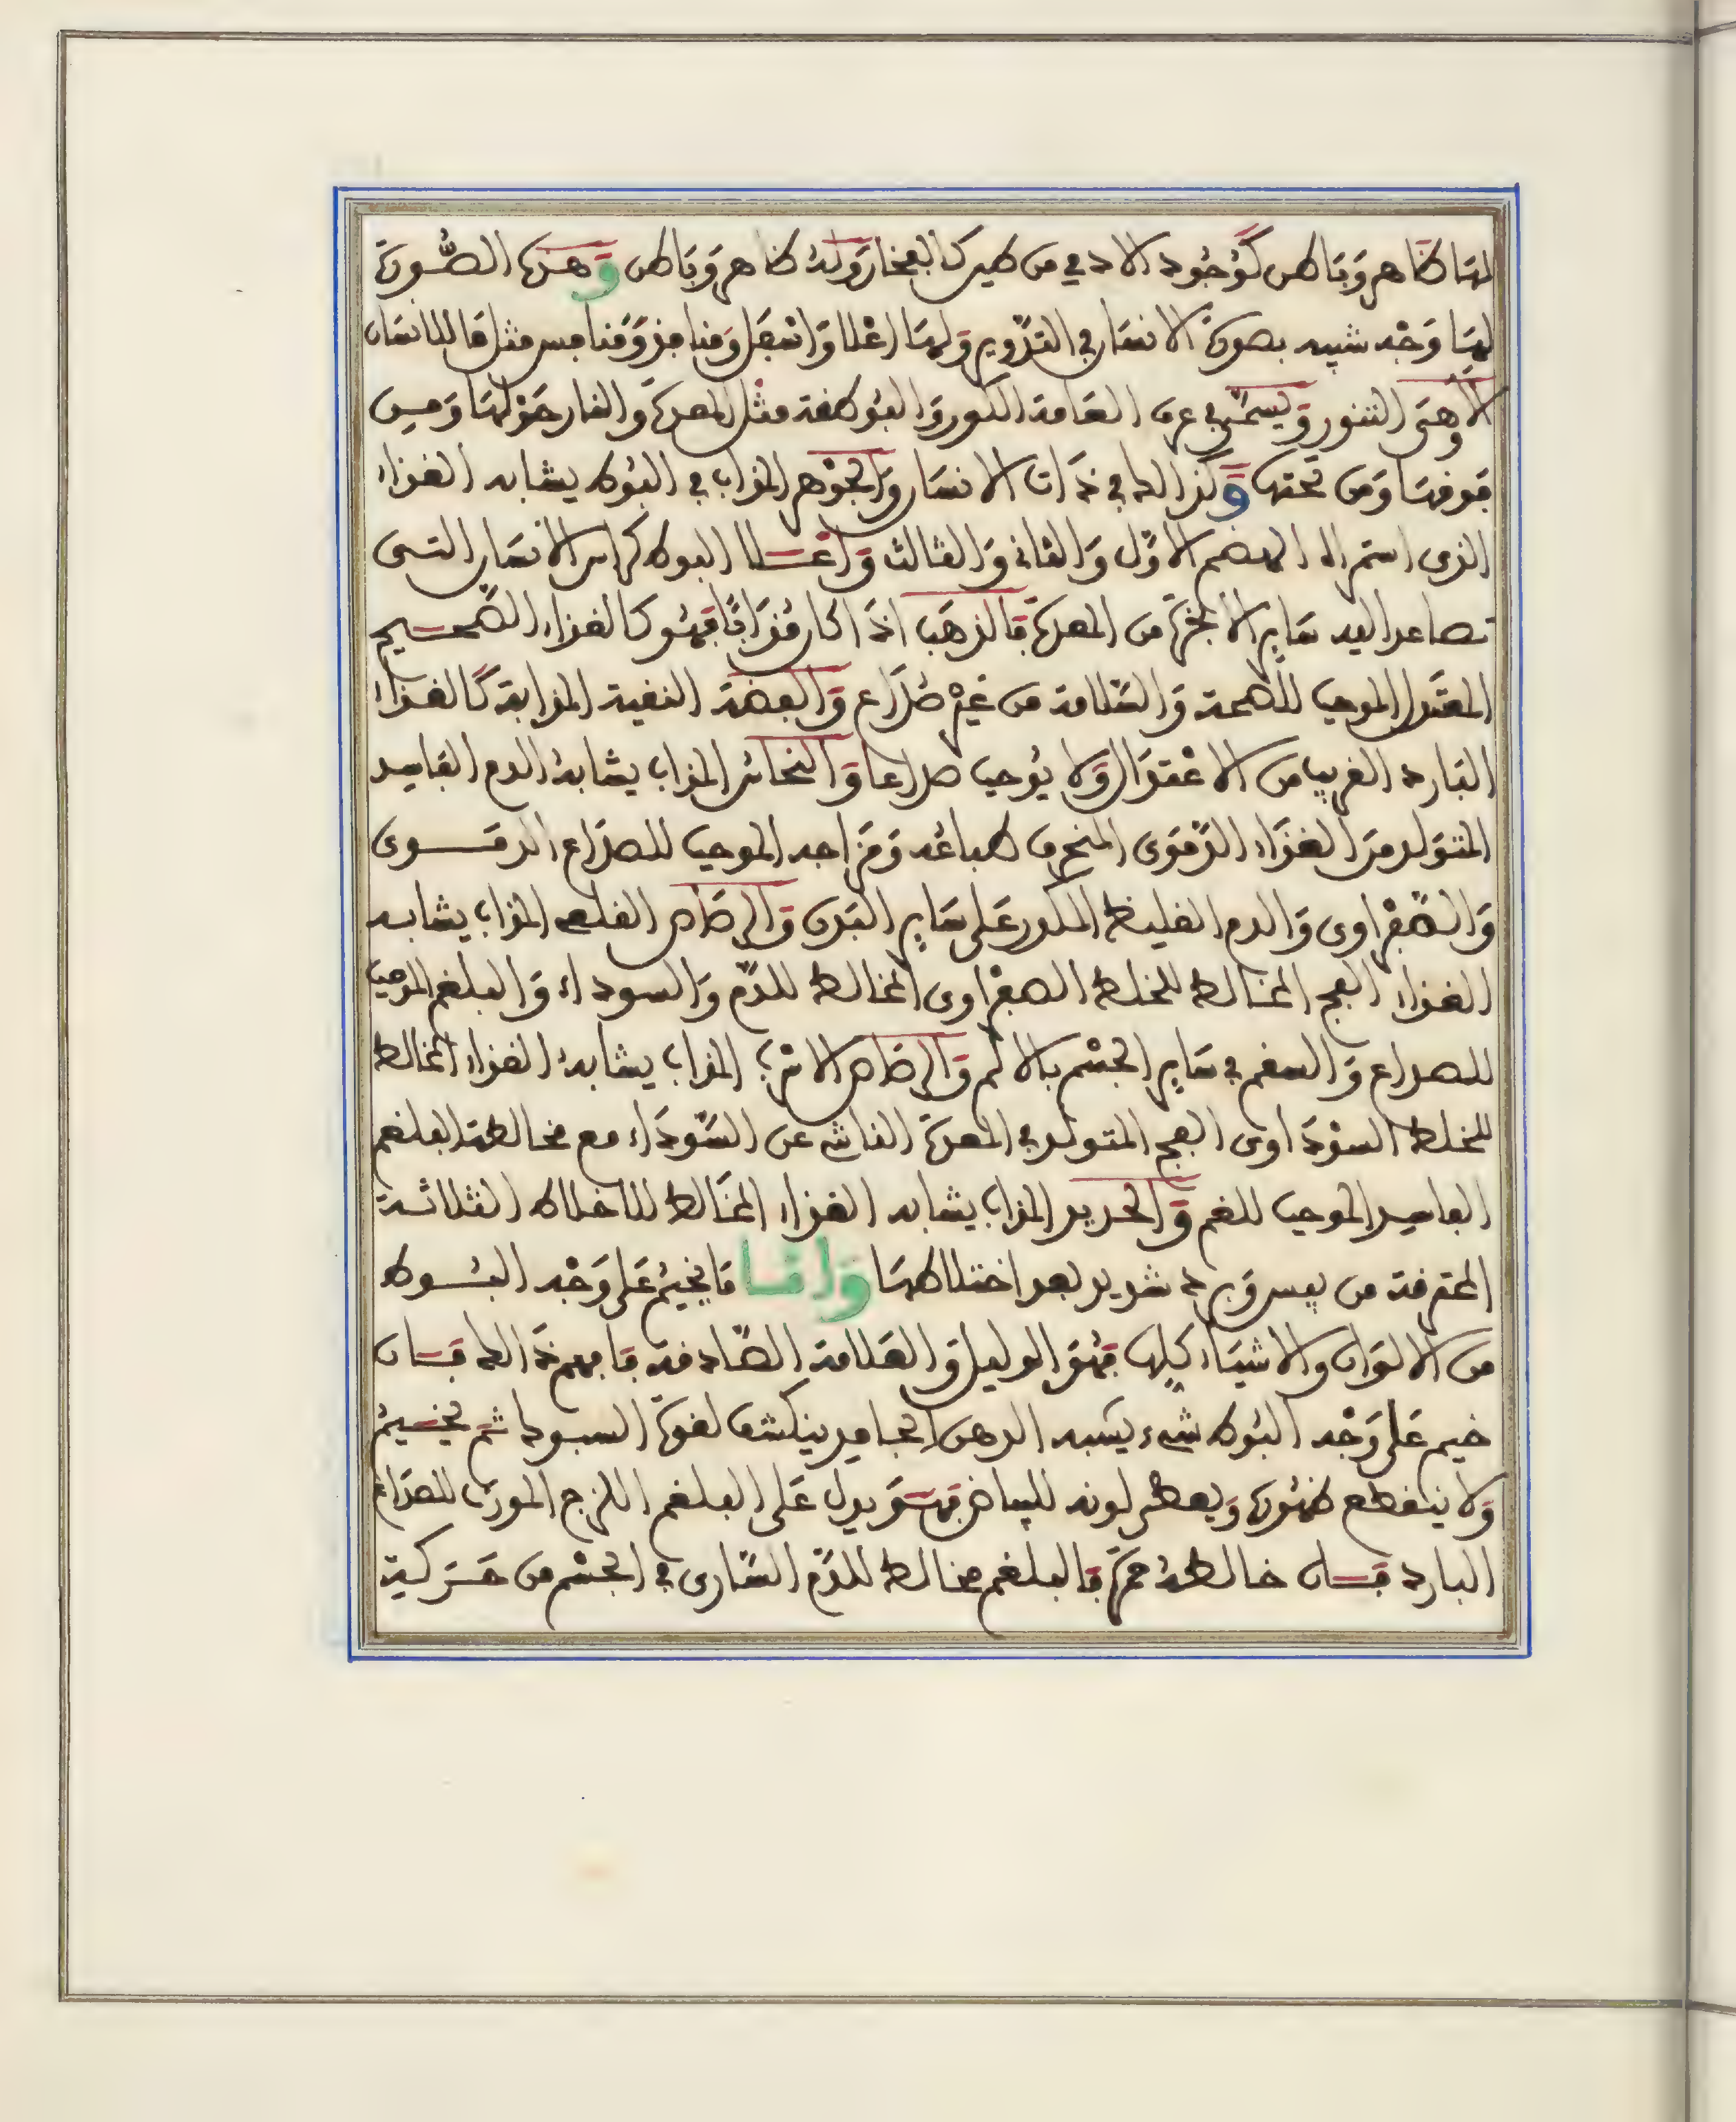 لها ظاهر وباطن كوجود الادمي من طين كالفخار وله ظاهر وباطن وهذه الصورة
لها وجه شبيه بصورة الانسان في التدوير ولها اعلا واسفل ومنافذ ومنافس مثل ما للانسان
الا وهى التنور ويسمى في عرف العامة الكور والبوطفة مثل المعدة والنار حولها ومن
فوقها ومن تحتها وكذالك في ذات الانسان والجوهر المذاب في البوط يشابه الغذاء
الذى استمراه الهضم الاول والثاني والثالث واعلا البوط كراس الانسان التى
تصاعد اليه ساير الابخرة من المعدة فالذهب اذا كان مذابا فهو كالغذاء الصحيح
المعتدل الموجب للصحة والسلامة من غير صداع والفضة النقية المذابة كالغذاء
البارد القريب من الاعتدال ولا يوجب صداعا والنحاس المذاب يشابه الدم الفاسد
المتولد من الغذاء الدموى المنحرف طباعه ومزاجه الموجب للصداع الدموى
والصفراوى والدم الغليظ المكدر على ساير البدن والرصاص القلعي المذاب يشابه
الغذاء الفج المخالط للخلط الصفراوى المخالط للدم والسوداء والبلغم الموجب
للصداع والسقم في ساير الجسم بالالم والرصاص الاسرب المذاب يشابه الغذاء المخالط
للخلط السوداوى الفج المتولد في المعدة الناشي عن السوداء مع مخالطة البلغم
الفاسد الموجب للغم والحديد المذاب يشابه الغذاء المخالط للاخلاط الثلاثة
المحترقة من يبس وبرد شديد بعد اختلاطها واما ما يخيم على وجه البوط
من الالوان والاشياء كلها فهو الدليل والعلامة الصادقة فافهم ذالك فان
خيم على وجه البوط شيء يشبه الدهن الجامد ينكشف لقوة السبوك ثم يخيم
ولا ينقطع ظهوره ويعطى لونه للبياض فهو يدل على البلغم اللزج المورث للصداع
البارد فان خالطه حمرة فالبلغم مخالط للدم السارى في الجسم من حركية